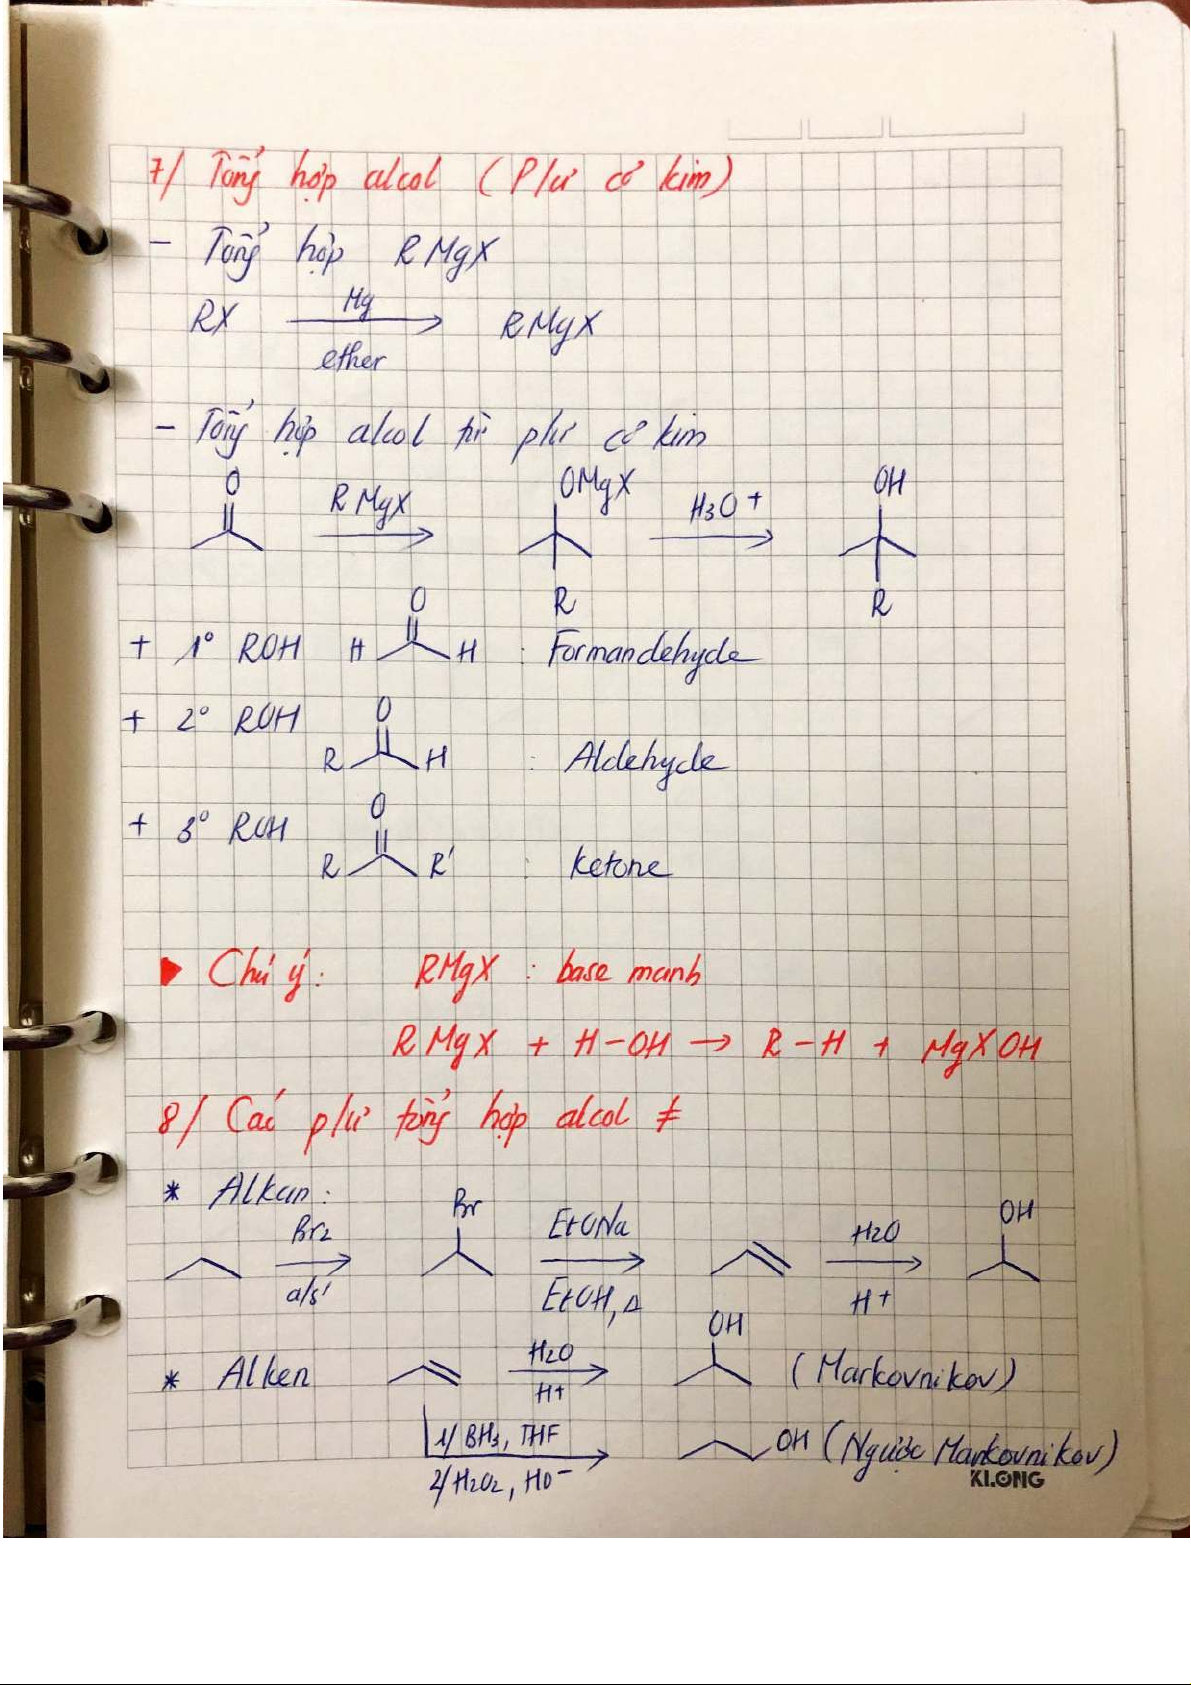 7/ Tổng hợp alcol ( Pứ cơ kim)
- Tổng hợp RMgX
RX Mg ether RMgX
- Tổng hợp alcol từ pứ cơ kim
O RMgX OMgX R H3O+ OH R
+ 1° ROH H O H : Formandehyde
+ 2° ROH R O H : Aldehyde
+ 3° ROH R O R' : Ketone
Chú ý: RMgX : base mạnh
RMgX + H-OH → R-H + MgXOH
8/ Các pứ tổng hợp alcol ≠
* Alkan:
Br2 a/s' Br EtONa EtOH, Δ H2O H+ OH
* Alken H2O H+ OH (Markovnikov)
1/ BH3, THF 2/ H2O2, HO- OH (Ngược Markovnikov)
KLONG